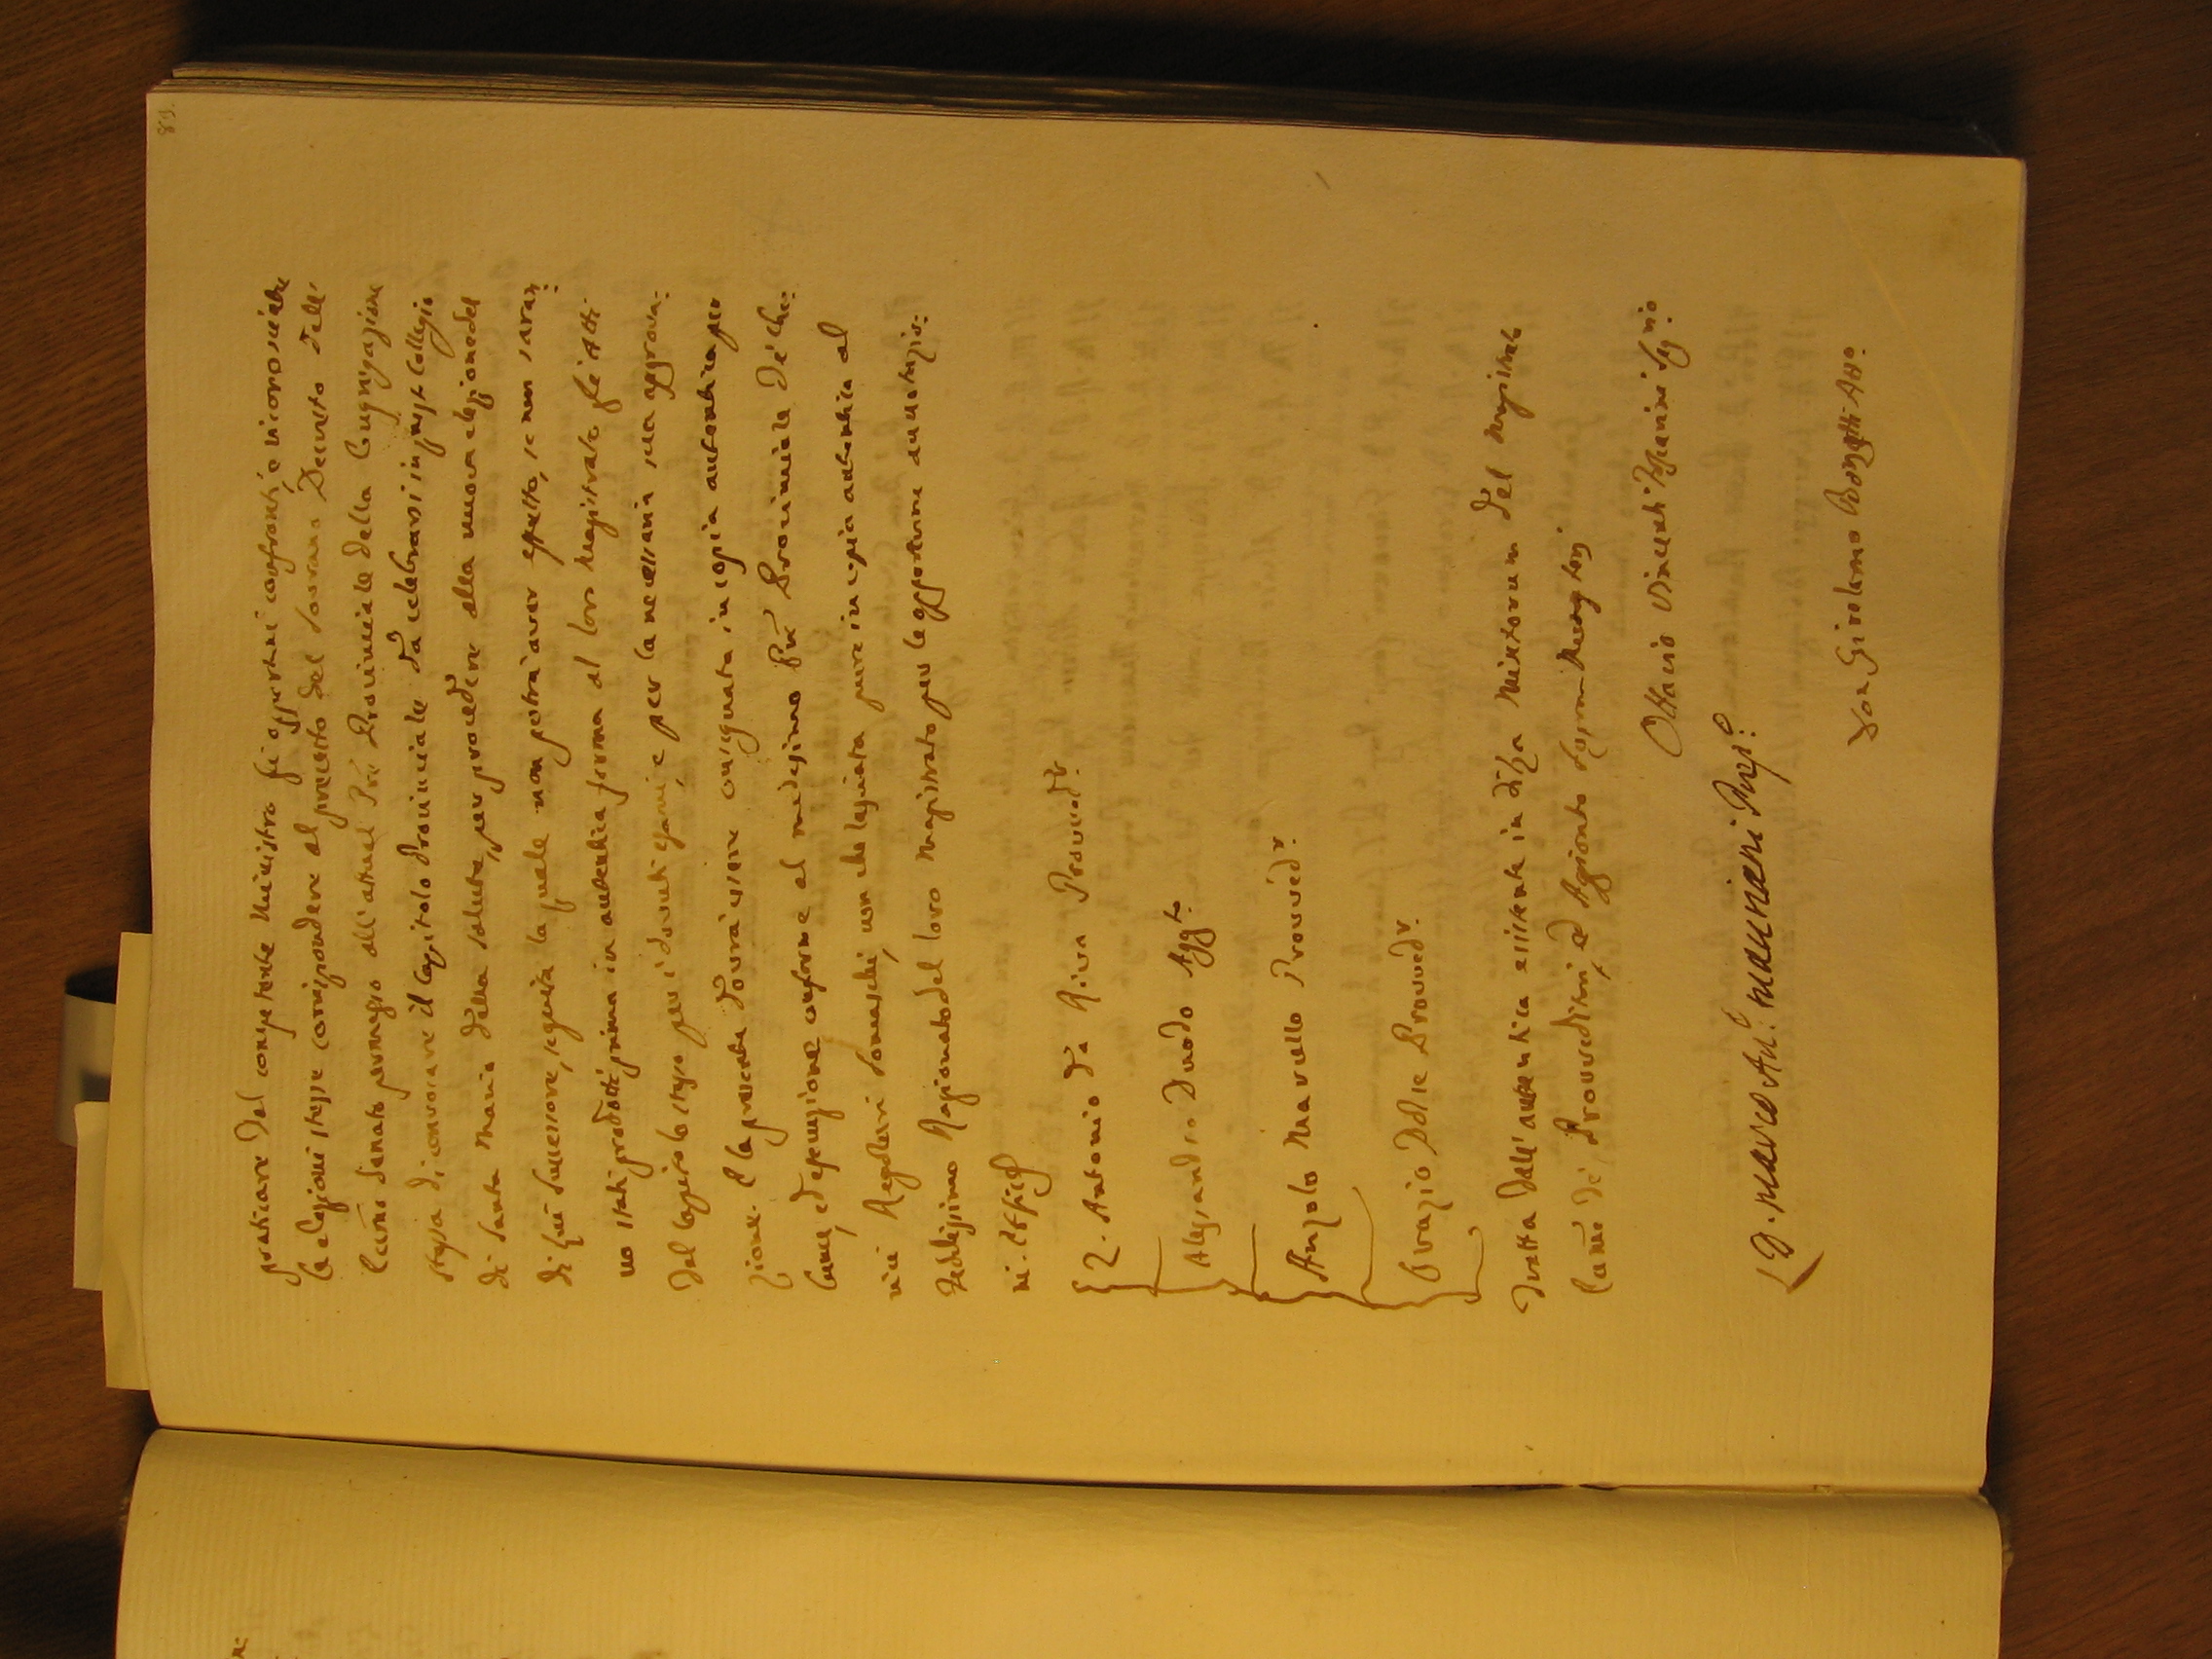 85.
praticare dal competente Ministro gli opportuni confronti, e riconosciute
le elezioni stesse corrispondere al prescritto del Sovrano Decreto dell'
Eccmo Senato permesso all'attual Pre Provinciale della Congregazione
stessa di convocare il Capitolo Provinciale da celebrarsi in questo Collegio
di Santa Maria della Salute, per procedere alla nuova elezione del
di Lui Successore, seguita la quale non potrà aver effetto, se non saran:
no stati prodotti prima in autentica forma al loro Magistrato gli Atti
del Capitolo stesso per i dovuti esami, e per la necessaria sua approva:
zione. E la presente dovrà essere consegnata in copia autentica per
lume, ed esecuzione conforme al medesimo Pre Provinciale de' Che:
rici Regolari Somaschi, non che lasciata pure in copia autentica al
Fedelissimo Ragionato del loro Magistrato per le opportune annotazio:
ni.
{Z. Antonio da Riva Provved.r
{Alessandro Duodo Agg.to
{Anzolo Marcello Provved.r
{Orazio Dolce Provved.r
Tratta dall'autentica esistente in Filza Minutarum del Magistrato
Eccmo de' Provveditori, ed Aggionto Sopra Monasterj
Ottavio Seg.rio
D. Marco An.: Manniani
Gio: Girolamo